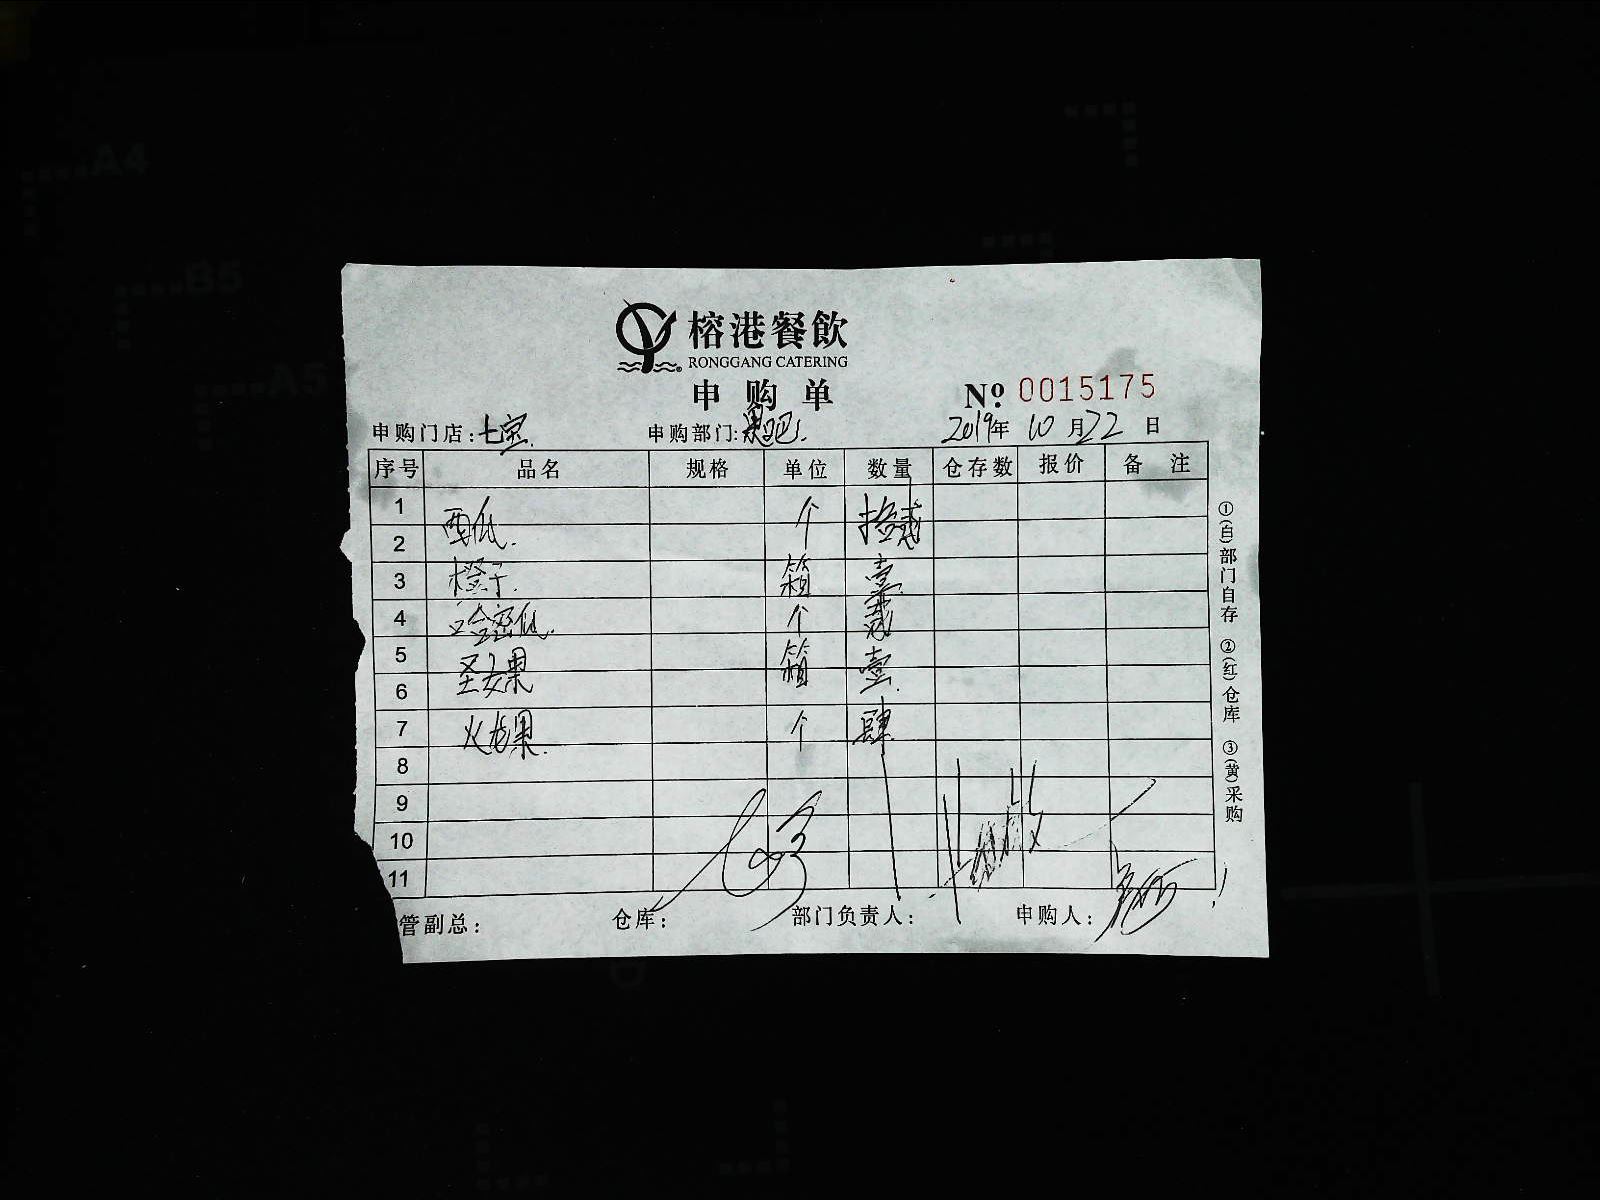 榕港餐飲
RONGGANG CATERING
申购单
Nº 0015175
申购门店:七宝. 申购部门:果吧. 2019年 10月22日
序号 品名 规格 单位 数量 仓存数 报价 备 注
1
西瓜. 个 拾贰
2
3 橙子. 箱 壹
4 哈密瓜. 个 贰
5
圣女果 箱 壹.
6
7 火龙果. 个 肆
8
9
10
11
管副总: 仓库: 部门负责人: 申购人:
①(白)部门自存 ②(红)仓库 ③(黄)采购
A4
B5
A5